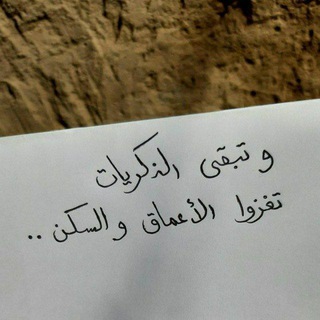 و تبقى الذكريات
تغزوا الأعماق والسكن ..